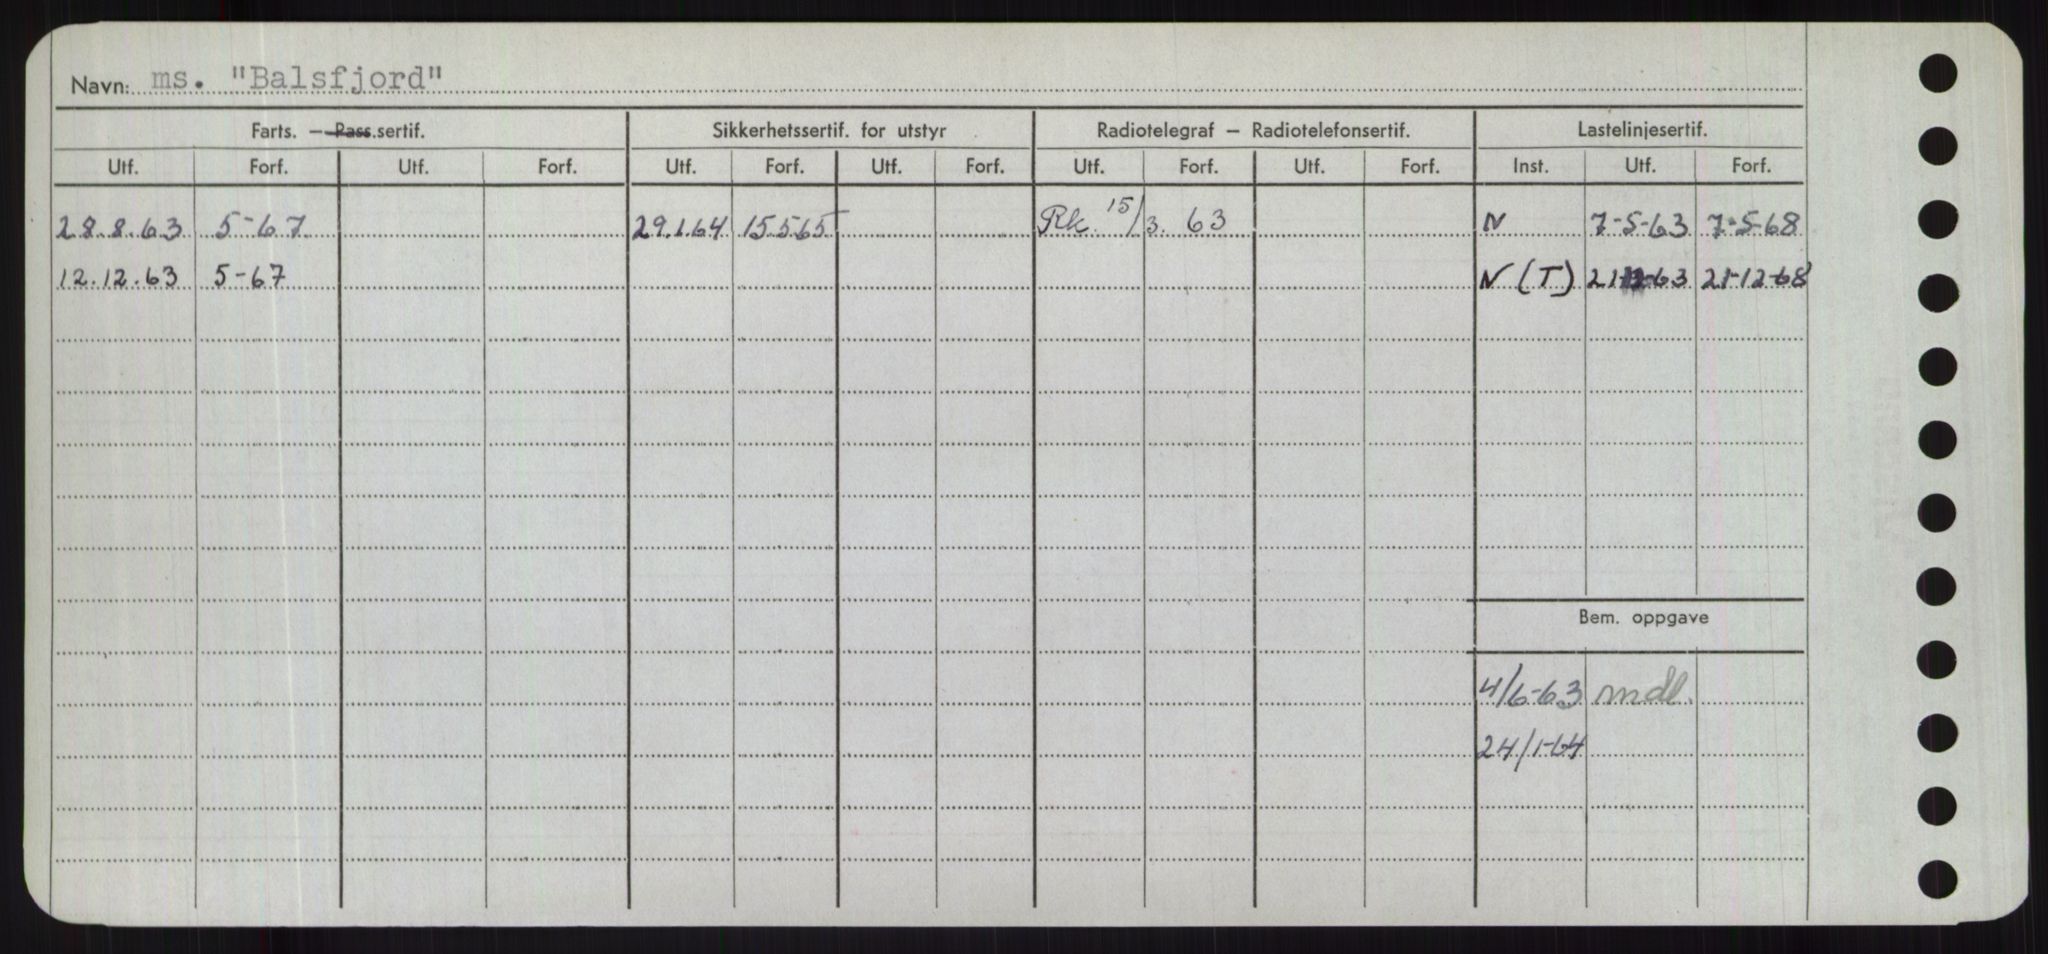 Navn: ms. "Balsfjord"
Farts. — Pass.sertif. Sikkerhetssertif. for utstyr Radiotelegraf — Radiotelefonsertif. Lastelinjesertif.
Utf. Forf. Utf. Forf. Utf. Forf. Utf. Forf. Utf. Forf. Utf. Forf. Inst. Utf. Forf.
28.8.63 5-67 29.1.64 15.5.65 Rk. 15/3. 63 N 7-5-63 7-5-68
12.12.63 5-67 N (T) 21-12-63 21-12-68
Bem. oppgave
4/6-63 mdl.
24/1-64